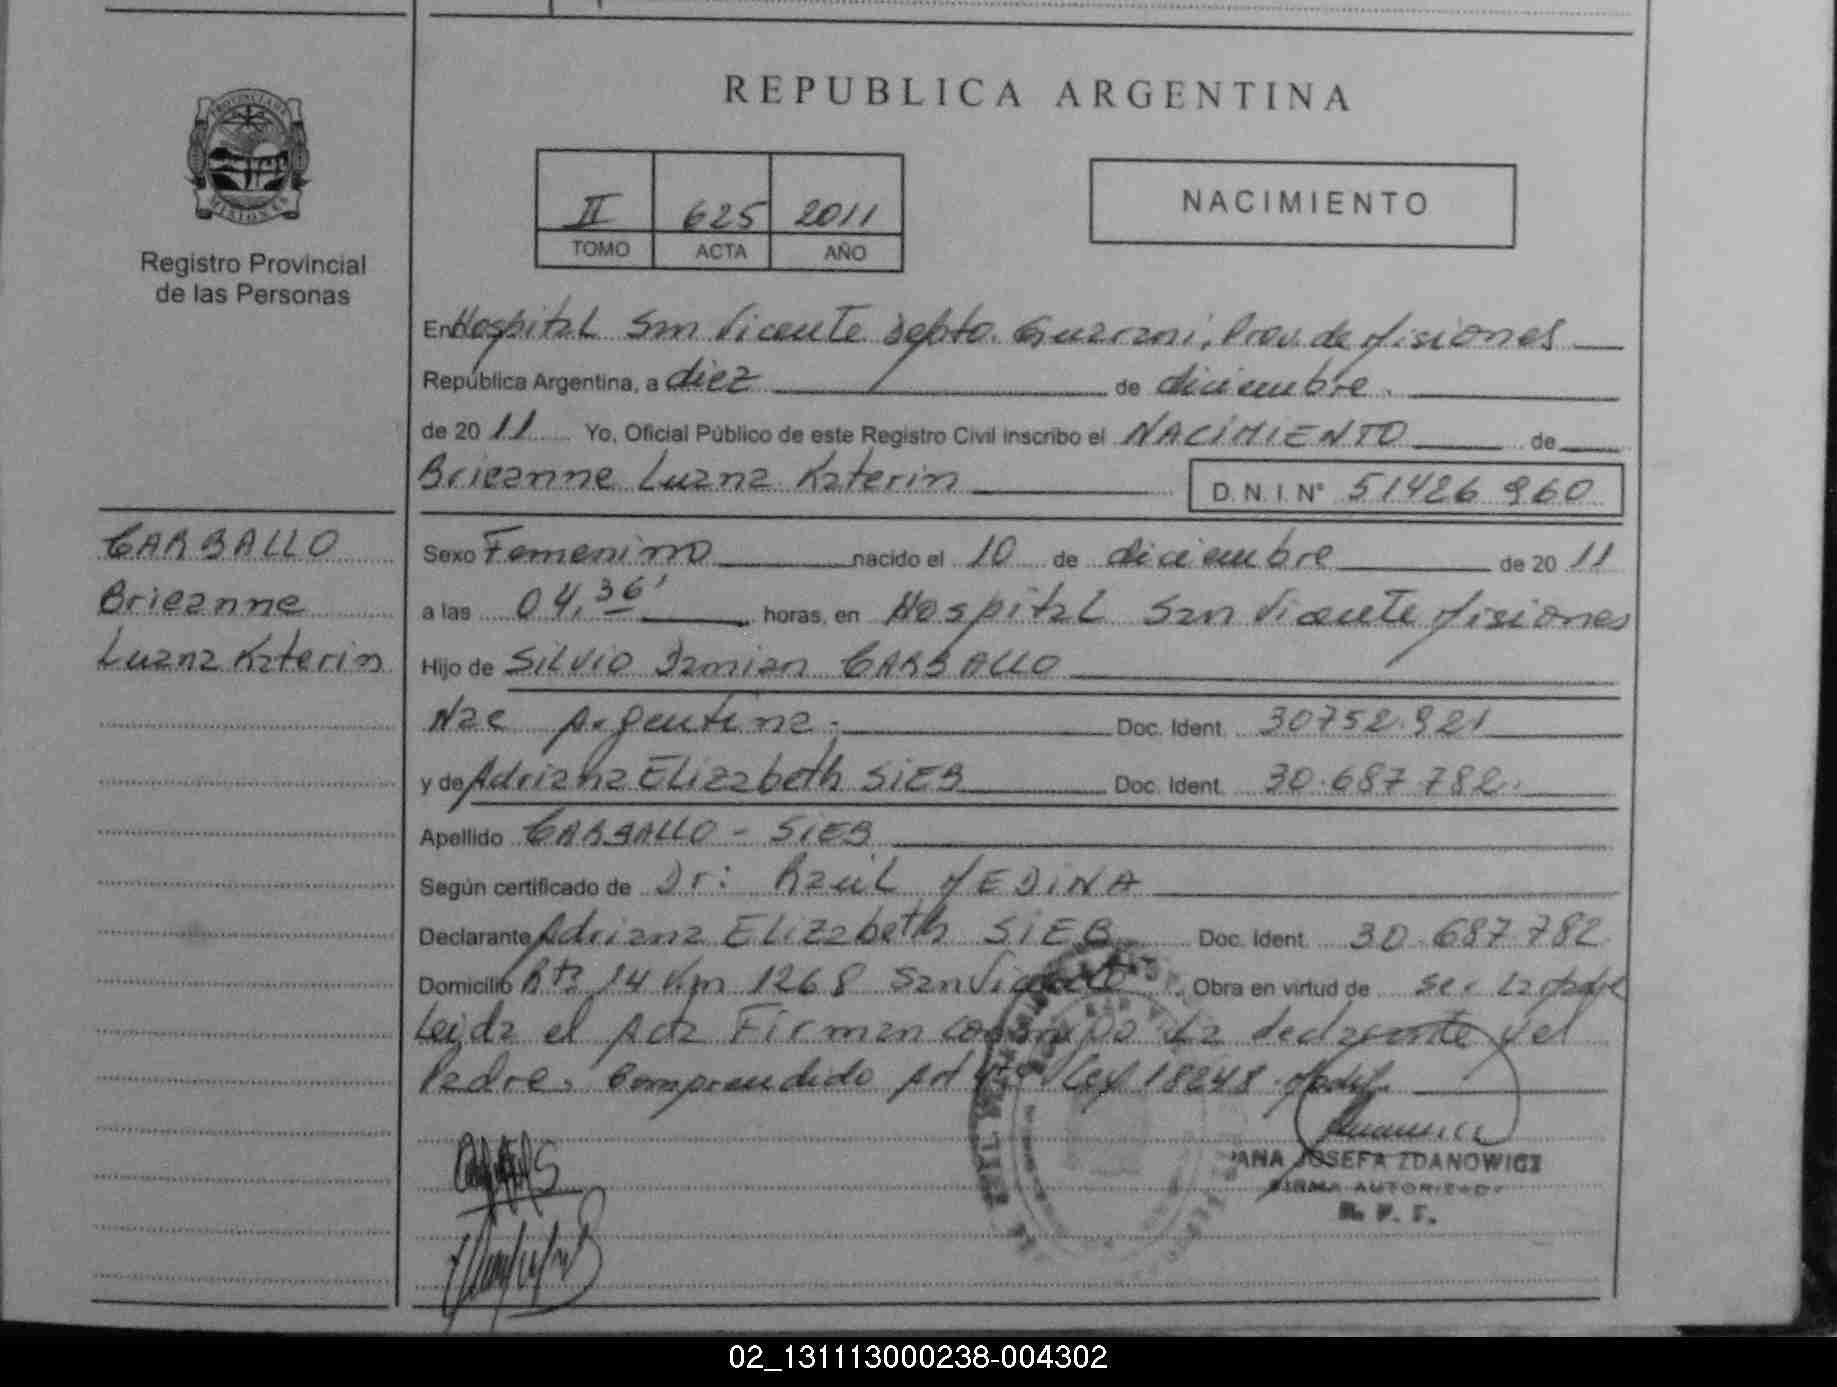 REPUBLICA ARGENTINA
PROVINCIA DE
MISIONES
Registro Provincial
de las Personas
II 625 2011
TOMO ACTA AÑO
NACIMIENTO
En Hospital San Vicente Depto. Guarani, Prov. de Misiones
República Argentina, a diez de diciembre
de 2011 Yo, Oficial Público de este Registro Civil inscribo el NACIMIENTO de
Brieanne Luana Katerin D.N.I. N° 51426960
CARBALLO
Brieanne
Luana Katerin
Sexo Femenino nacido el 10 de diciembre de 2011
a las 04,36' horas, en Hospital San Vicente Misiones
Hijo de Silvio Damian CARBALLO
Nac Argentina. Doc. Ident. 30752.921
y de Adriana Elizabeth SIEB Doc. Ident. 30.687.782.
Apellido CARBALLO - SIEB
Según certificado de Dr: Raúl MEDINA
Declarante Adriana Elizabeth SIEB Doc. Ident. 30.687.782
Domicilio Rta 14 Km 1268 San Vicente. Obra en virtud de ser La Madre
Leida el Acta Firman conmigo La declarante y el
Padre. Comprendido Art Ley 18248 Modif.
ANA JOSEFA ZDANOWICZ
FIRMA AUTORIZADA
R. P. P.
02_131113000238-004302